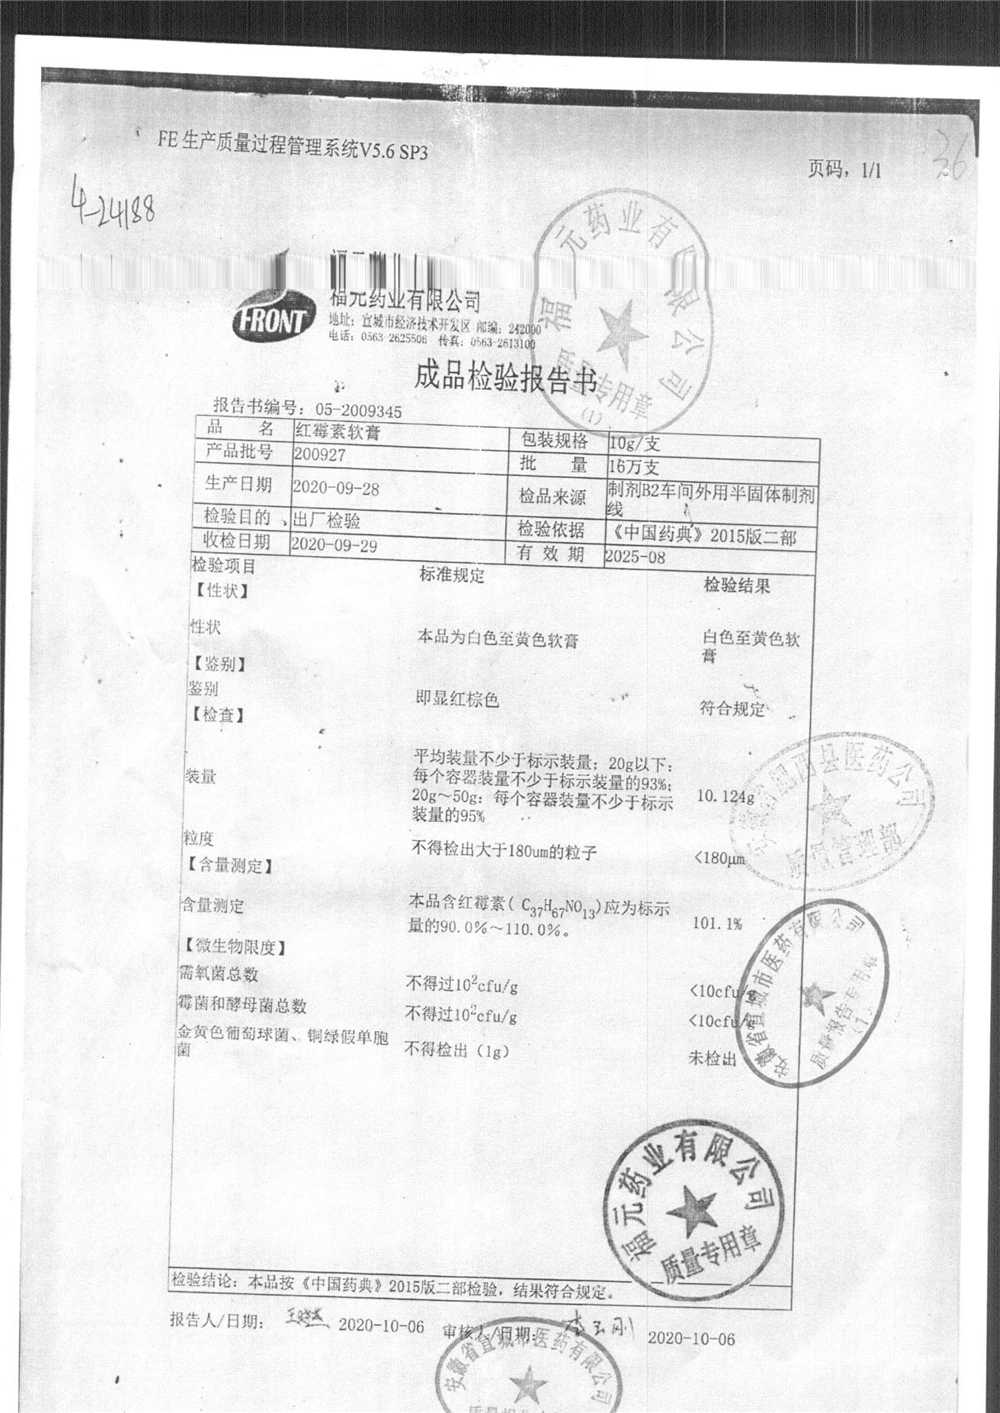 FE 生产质量过程管理系统V5.6 SP3
页码，1/1
36
4-24188
FRONT
福元药业有限公司
地址：宣城市经济技术开发区 邮编：242000
电话：0563-2625506 传真：0563-2613100
福元药业有限公司
质量专用章
(1)
成品检验报告书
报告书编号：05-2009345
品 名 红霉素软膏 包装规格 10g/支
产品批号 200927 批 量 16万支
生产日期 2020-09-28 检品来源 制剂B2车间外用半固体制剂
线
检验目的 出厂检验 检验依据 《中国药典》2015版二部
收检日期 2020-09-29 有 效 期 2025-08
检验项目 标准规定 检验结果
【性状】
性状 本品为白色至黄色软膏 白色至黄色软
膏
【鉴别】
鉴别 即显红棕色 符合规定
【检查】
装量 平均装量不少于标示装量；20g以下：
每个容器装量不少于标示装量的93%；
20g～50g：每个容器装量不少于标示
装量的95% 10.124g
粒度 不得检出大于180um的粒子 <180μm
【含量测定】
含量测定 本品含红霉素( C37H67NO13)应为标示
量的90.0%～110.0%。 101.1%
【微生物限度】
需氧菌总数 不得过10²cfu/g <10cfu/g
霉菌和酵母菌总数 不得过10²cfu/g <10cfu/g
金黄色葡萄球菌、铜绿假单胞
菌 不得检出（1g） 未检出
安徽省肥西县医药公司
质量管理部
安徽省宣城市医药有限公司
质量报告专用章
福元药业有限公司
质量专用章
检验结论：本品按《中国药典》2015版二部检验，结果符合规定。
报告人/日期： 2020-10-06 审核人/日期： 2020-10-06
安徽省宣城市医药有限公司